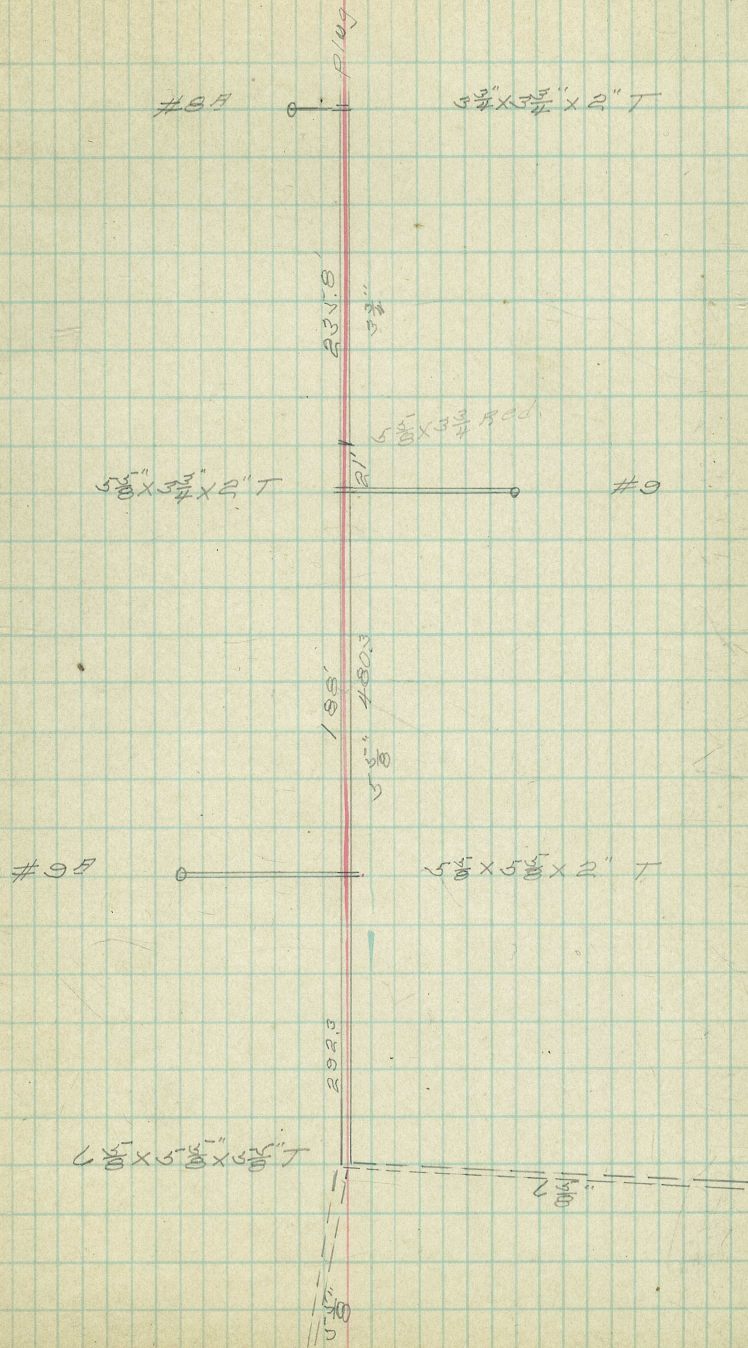 Plug
#8A
3 3/4" x 3 3/4" x 2" T
235.8'
3 3/4"
5 5/8 x 3 3/4 Red.
21'
5 5/8" x 3 3/4" x 2" T
#9
188'
480.3
5 5/8"
#9A
5 5/8 x 5 5/8 x 2" T
292.3
6 5/8 x 5 5/8" x 5 5/8" T
6 5/8"
5 5/8"